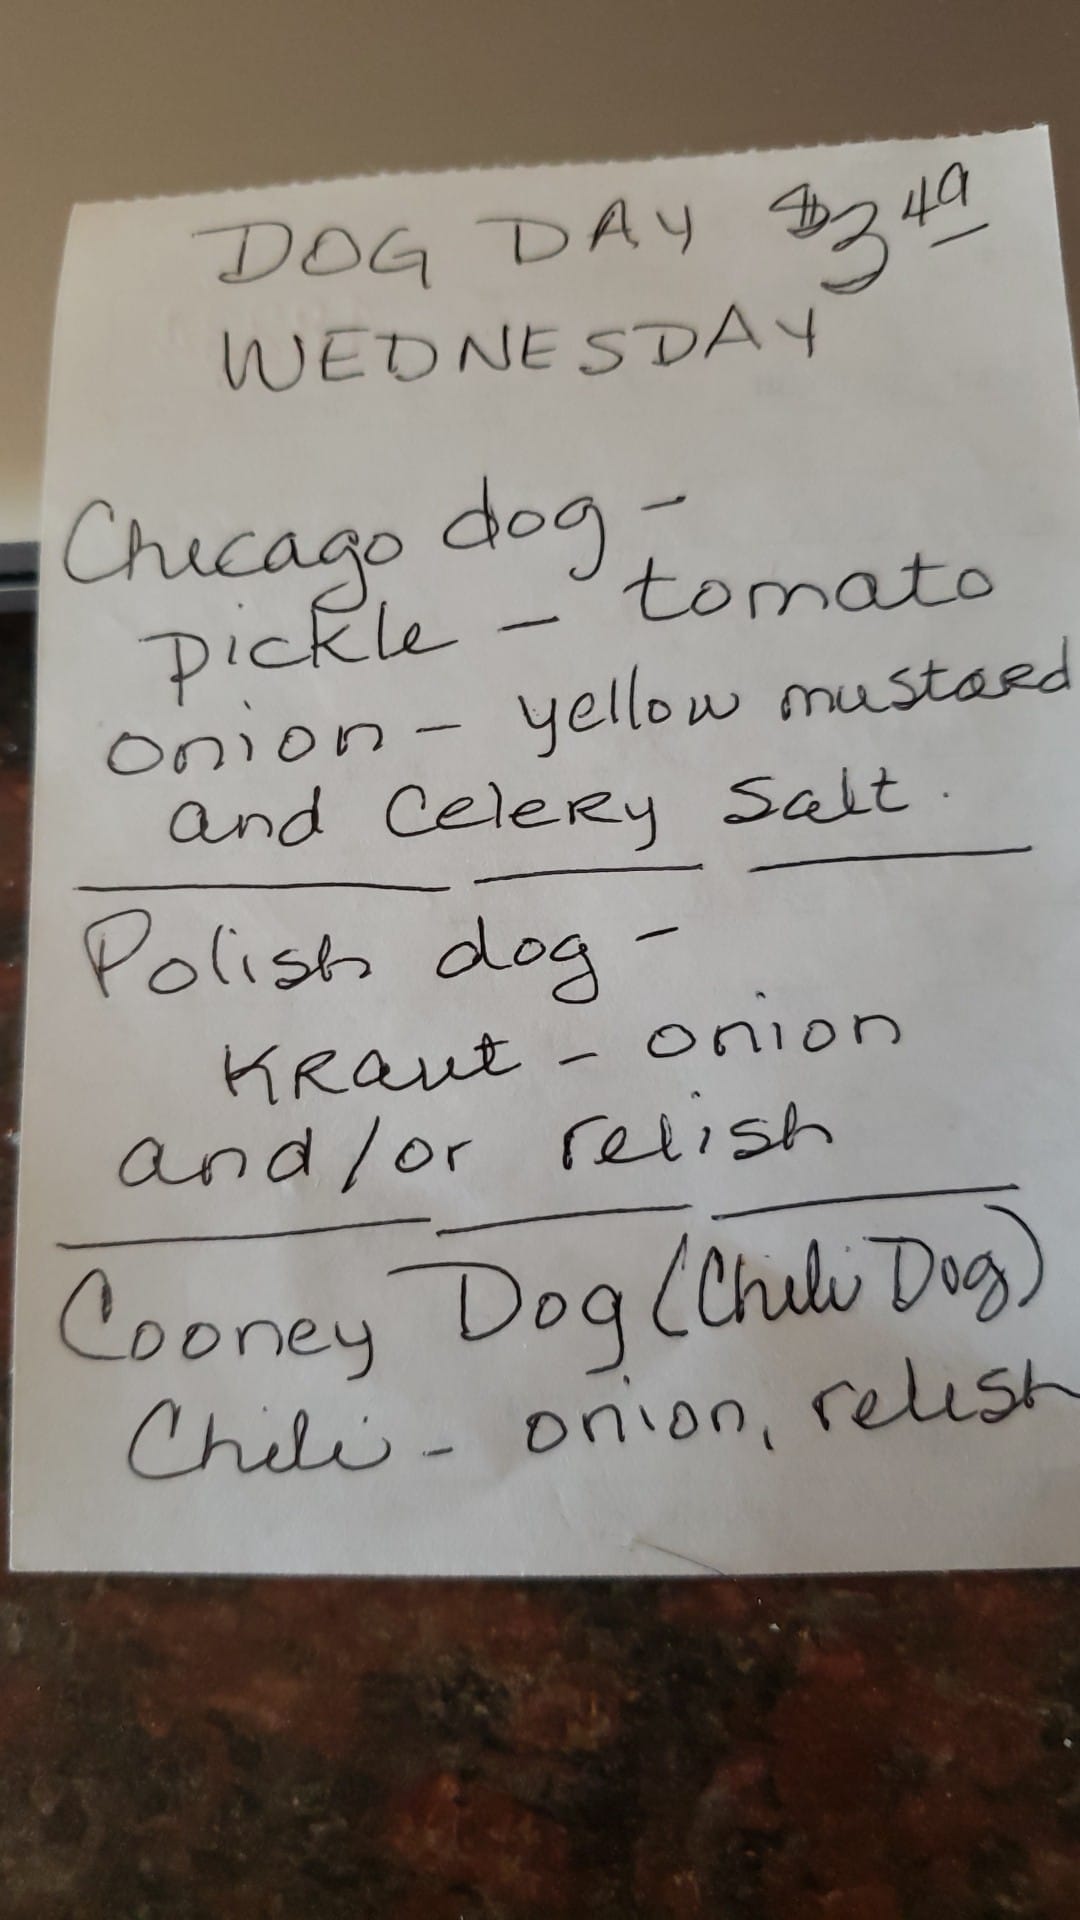 DOG DAY $3.49
WEDNESDAY
Chicago dog -
pickle - tomato
onion - yellow mustard
and Celery Salt.
Polish dog -
Kraut - onion
and/or relish
Cooney Dog (Chili Dog)
Chili - onion, relish